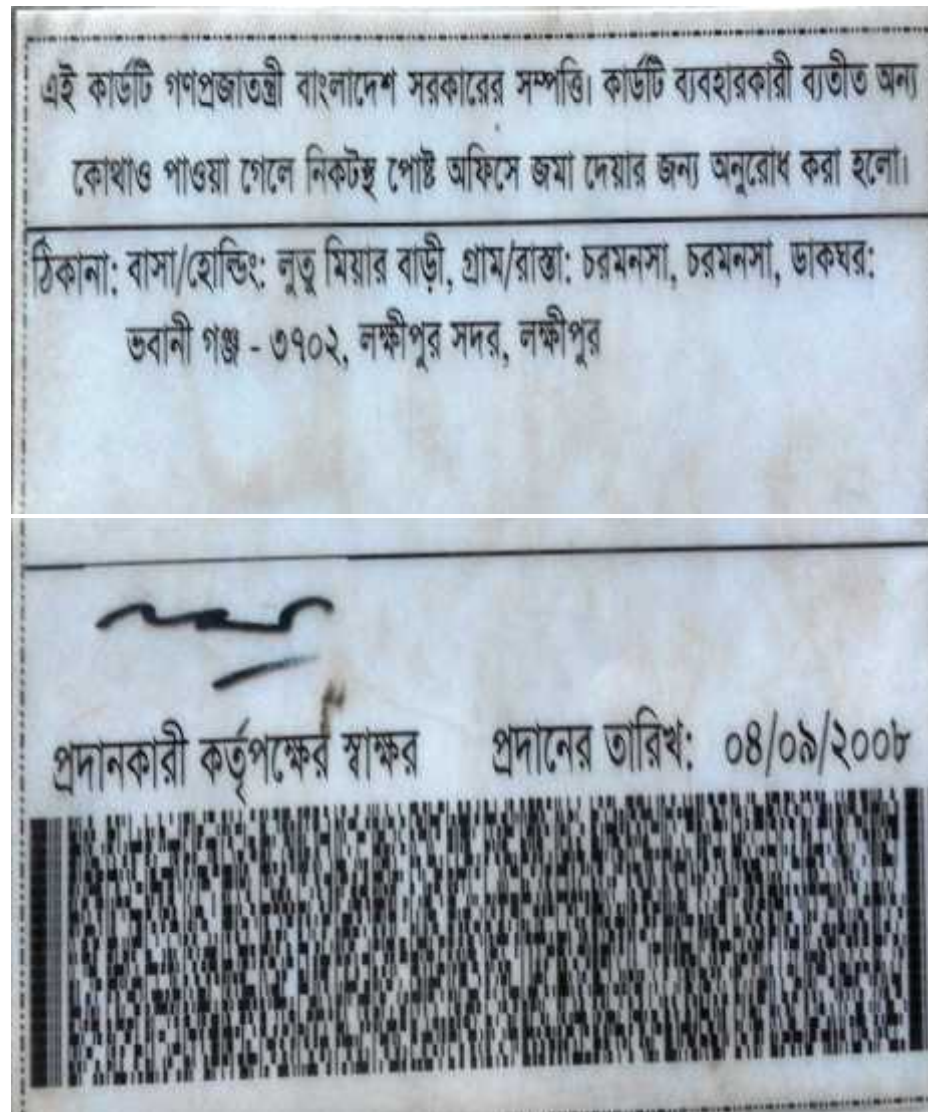 এই কার্ডটি গণপ্রজাতন্ত্রী বাংলাদেশ সরকারের সম্পত্তি। কার্ডটি ব্যবহারকারী ব্যতীত অন্য
কোথাও পাওয়া গেলে নিকটস্থ পোষ্ট অফিসে জমা দেয়ার জন্য অনুরোধ করা হলো।
ঠিকানা: বাসা/হোল্ডিং: লুতু মিয়ার বাড়ী, গ্রাম/রাস্তা: চরমনসা, চরমনসা, ডাকঘর:
ভবানী গঞ্জ - ৩৭০২, লক্ষীপুর সদর, লক্ষীপুর
প্রদানকারী কর্তৃপক্ষের স্বাক্ষর প্রদানের তারিখ: ০৪/০৯/২০০৮